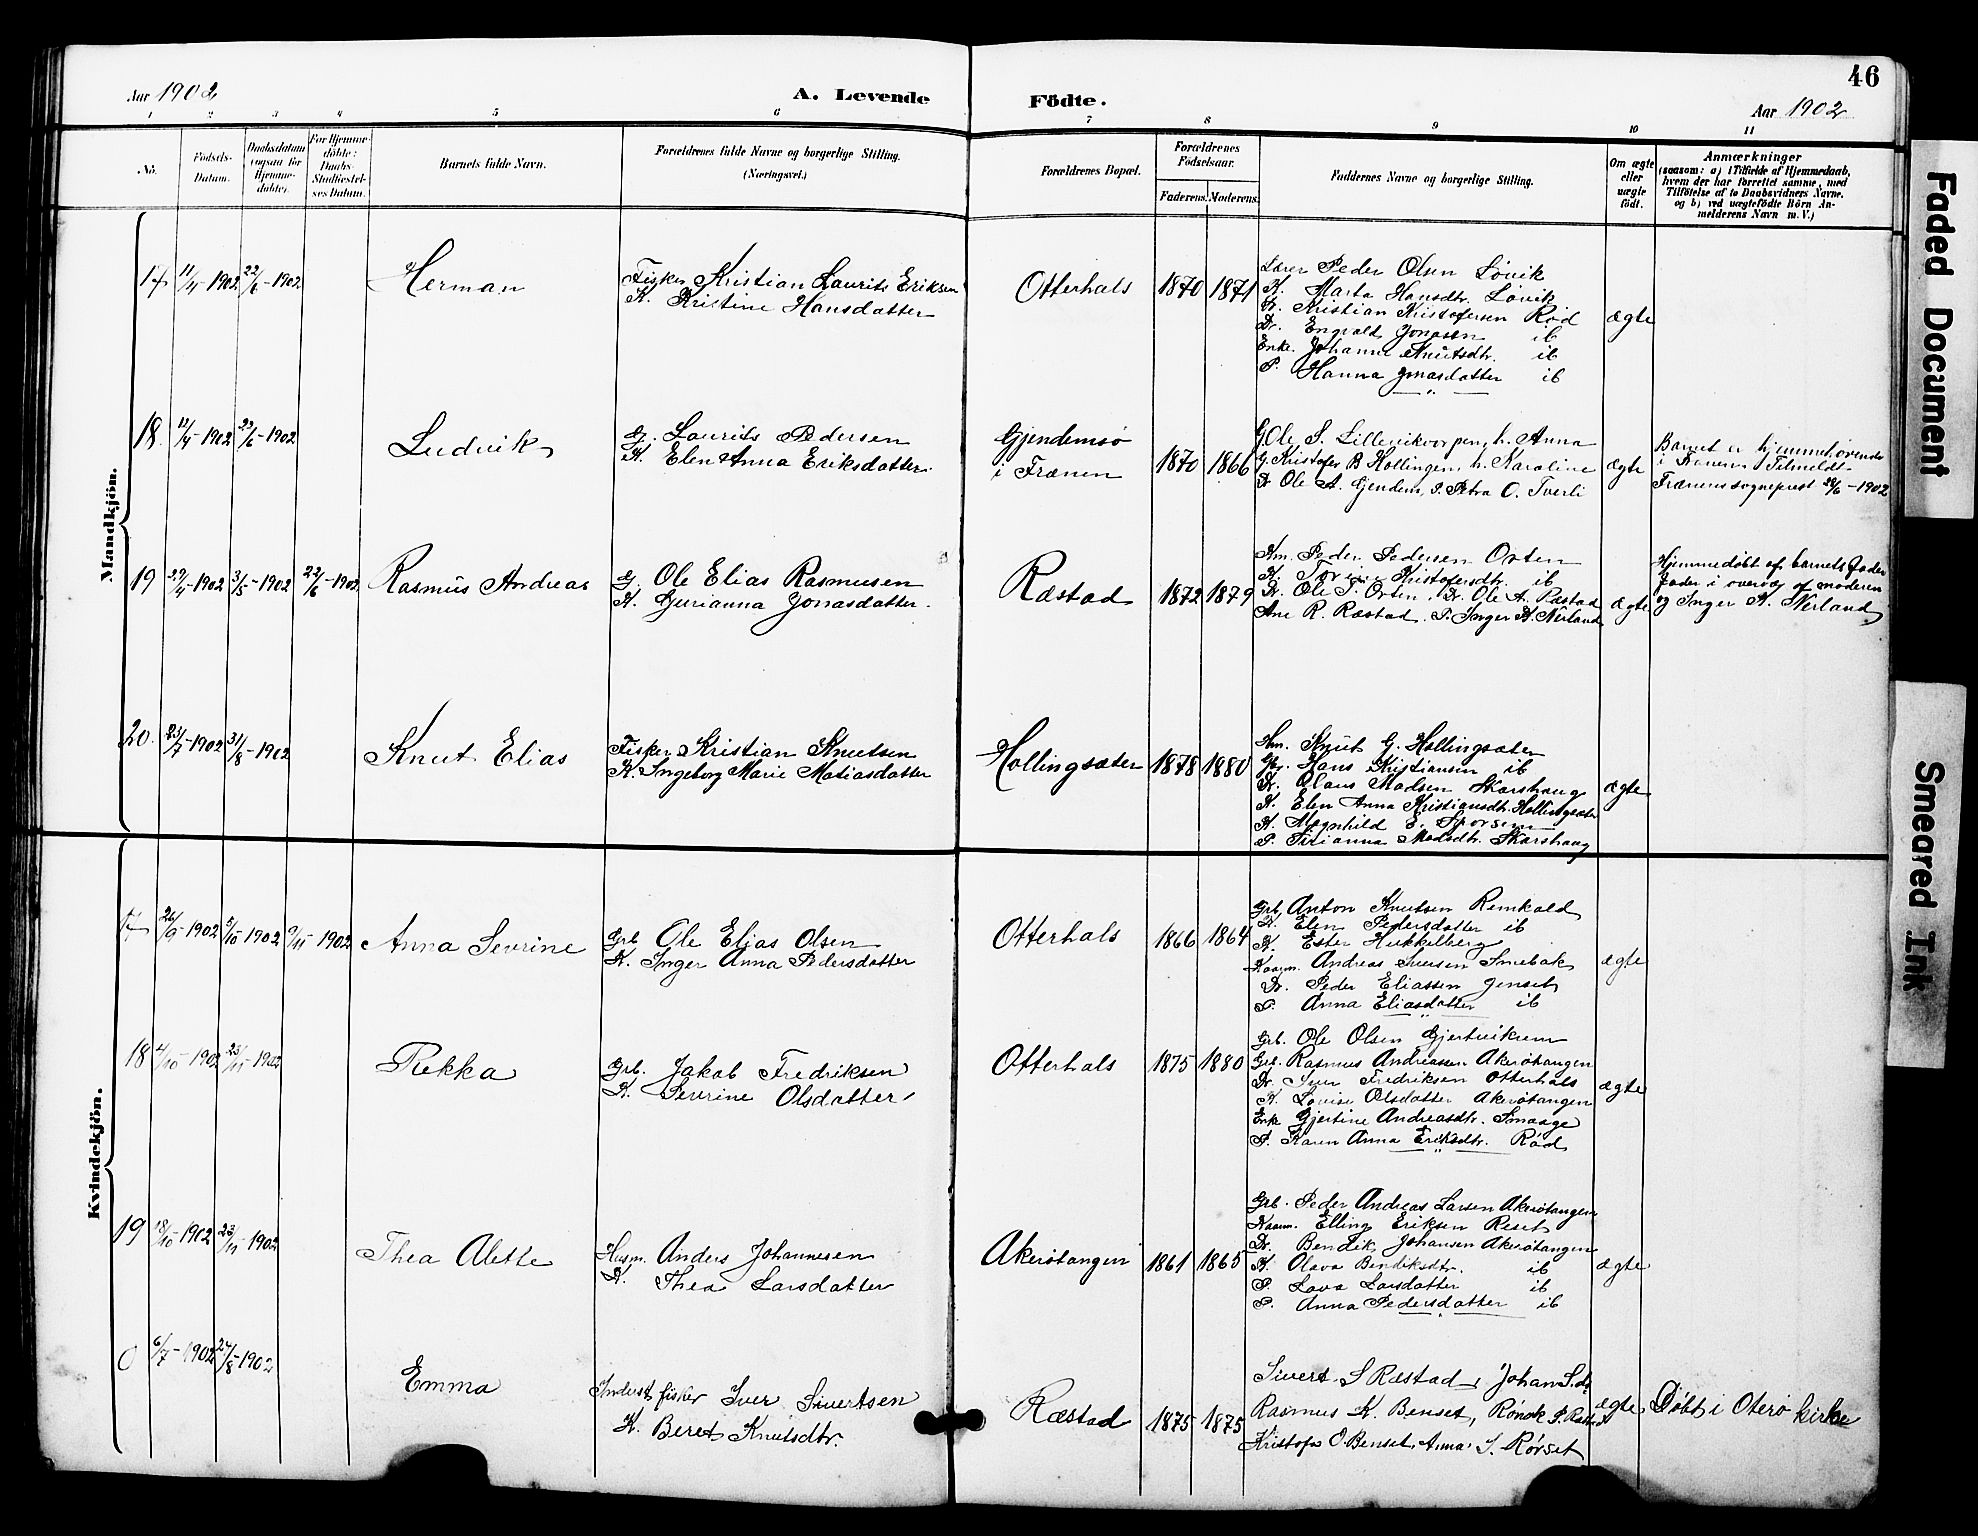 46
Aar 1902
A. Levende
Födte.
Aar 1902
1 2 3 4 5 6 7 8 9 10 11
No.
Födsels-
Datum.
Daabsdatum
(ogsaa for
Hjemme-
døbte).
For Hjemme-
döbte:
Daabs-
Stadfæstel-
ses Datum.
Barnets fulde Navn.
Forældrenes fulde Navne og borgerlige Stilling.
(Næringsvei.)
Forældrenes Bopæl.
Forældrenes
Födselsaar.
Faderens. Moderens.
Faddernes Navne og borgerlige Stilling.
Om ægte
eller
uægte
födt.
Anmærkninger
(saasom: a) i Tilfælde af Hjemmedaab,
hvem der har forrettet samme, med
Tilföielse af to Daabsvidners Navne.
og b) ved uægtefödte Börn An-
melderens Navn m. V.)
Mandkjön.
17 11/4-1902 22/6-1902
Herman
Fisker Kristian Laurits Eriksen
K. Kristine Hansdatter
Otterhals
1870 1871
Lærer Peder Olsen Løvik
K. Marta Hansdtr. Løvik
G. Kristian Kristofersen Rød
Dr. Engvald Jonasen ib
Enke. Johanne Knutsdtr. ib
P. Hanna Jonasdatter ib
ægte
18. 12/4-1902 22/6-1902
Ludvik
G. Laurits Pedersen
K. Elen Anna Eriksdatter.
Gjendemsø
i Frænen
1870 1866
G. Ole S. Lillevikvorpen, h. Anna
G. Kristofer B Hollingen, h. Karoline
Dr Ole A. Gjendem, P. Petra O. Tverli
ægte
Barnet er hjemmehørende
i Frænen. Tilmeldt
Frænens sogneprest 28/6-1902
19 29/4-1902 3/5-1902 22/6-1902
Rasmus Andreas
G. Ole Elias Rasmusen
K. Gurianna Jonasdatter.
Ræstad
1872 1879
Hm. Peder Pedersen Orten
K. Kristofersdtr. ib
Dr. Ole P. Orten. Dr. Ole A. Ræstad
Ane R. Ræstad. P. Inger K. Nerland
ægte
Hjemmedøbt af barnets fader
fader i overvær af moderen
og Inger K. Nerland
20. 23/7-1902 31/8-1902
Knut Elias
Fisker Kristian Knutsen
K. Ingeborg Marie Matiasdatter
Hollingsæter
1878 1880
Hm. Knut G. Hollingsæter
Hans Kristiansen ib
Dr. Olaus Madsen Skarshaug
K. Elen Anna Kristiansdtr. Hollingsæter
K. Magnhild E. Sporsem
P. Madsdtr. Skarshaug
ægte
Kvindekjön.
17 26/9-1902 5/10 1902 9/11 1902
Anna Sevrine
Grb. Ole Elias Olsen
K. Inger Anna Pedersdatter
Otterhals
1866 1864
Grb. Anton Knutsen Remkald
K. Elen Pedersdatter ib
K. Ester Hukkelberg
Kaarm. Andreas Iversen Smebak
Dr. Peder Eliassen Jenset
P. Anna Eliasdatter ib
ægte
18 4/10 1902 23/11 1902
Rekka
Grb. Jakob Fredriksen
K. Sevrine Olsdatter
Otterhals
1875 1880
Grb. Ole Olsen Gjertvikum
Grb. Rasmus Andreasen Akerøtangen
Dr. Iver Fredriksen Otterhals
K. Lovise Olsdatter Akerøtangen
Enke Gjertine Andreasdtr. Smaage
P. Karen Anna Eriksdtr. Rød
ægte
19 18/10 1902 23/11 1902
Thea Alette
Husm. Anders Johannesen
K. Thea Larsdatter
Akerøtangen
1861 1865
Grb. Peder Andreas Larsen Akerøtangen
Kaarm. Elling Eriksen Reset
Dr. Bendik Johansen Akerøtangen
K. Olava Bendiksdtr. ib
P. Lava Larsdatter ib
P. Anna Pedersdatter ib
ægte
0 6/7-1902 24/8-1902
Emma
Inderst fisker Iver Sivertsen
K. Beret Knutsdtr.
Ræstad
1875 1875
Sivert S Ræstad, Johan S. ds
Rasmus K. Benset, P. Ræstad
Kristofer O. Benset, Anna S. Rørset
ægte
Døbt i Oterø kirke
Faded Document
Smeared Ink